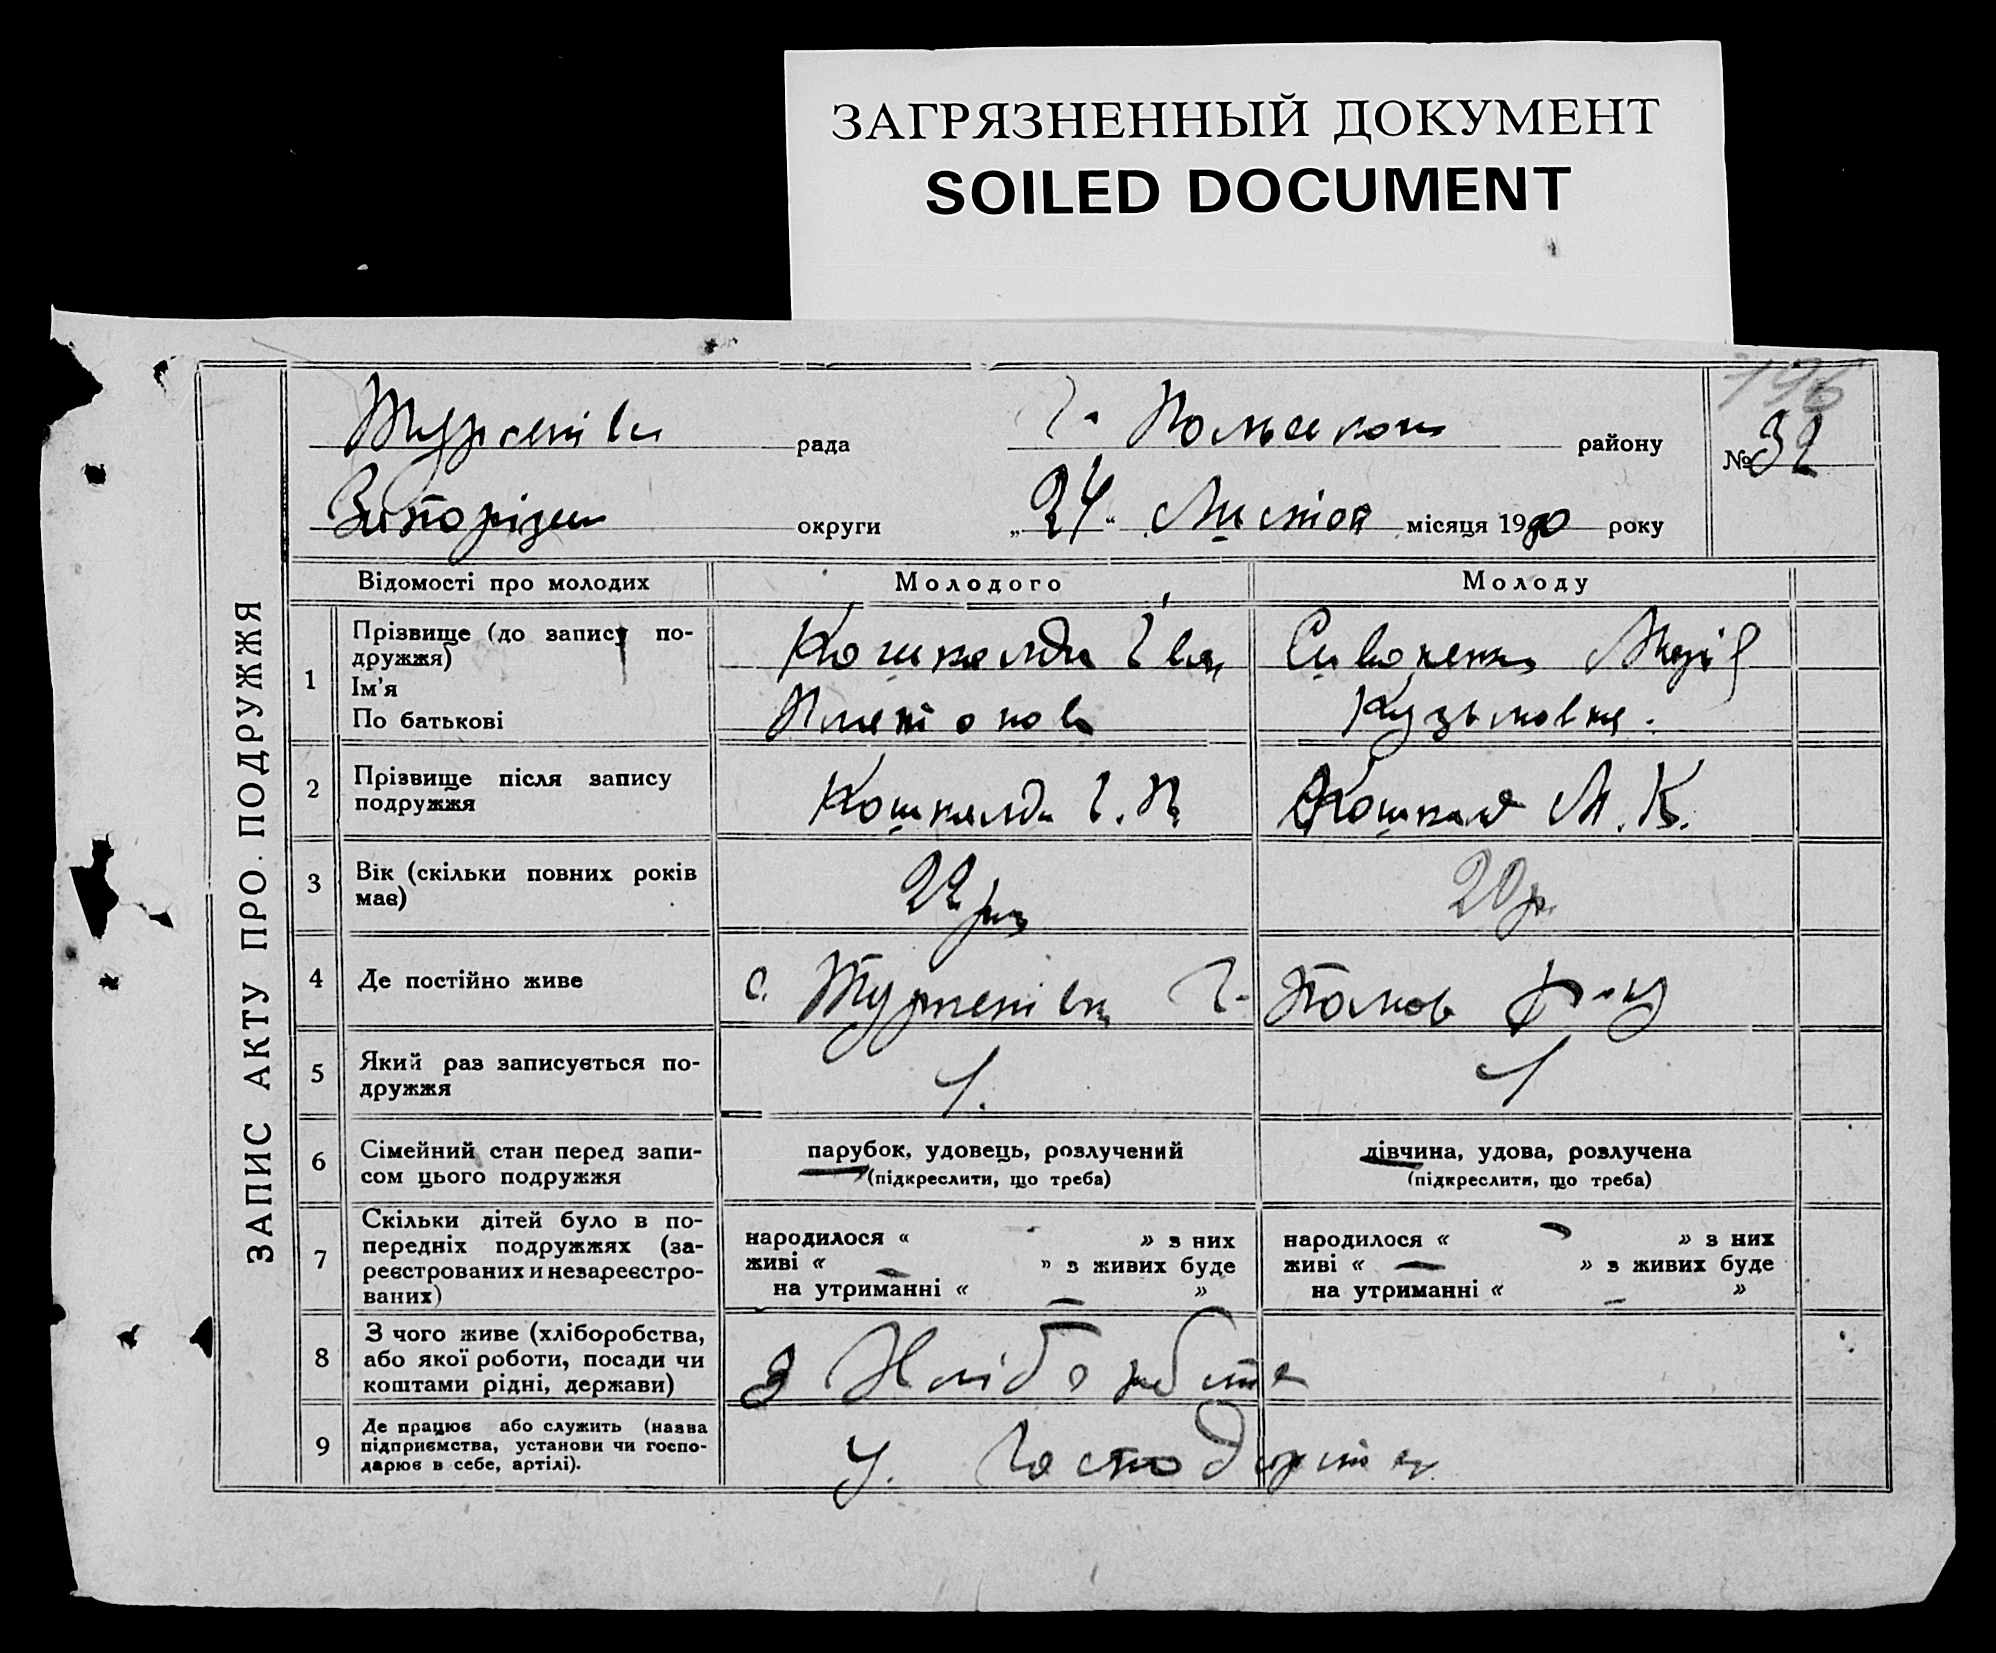 ЗАГРЯЗНЕННЫЙ ДОКУМЕНТ
SOILED DOCUMENT
196
рада Г. Польськом району
№ 32
округи „24“ місяця 19 року
ЗАПИС АКТУ ПРО ПОДРУЖЖЯ
Відомості про молодих Молодого Молоду
1 Прізвище (до запису по-
дружжя)
Ім'я
По батькові
Кошкалда Іван
Платонов
Марія
Кузьмовна.
2 Прізвище після запису
подружжя
Кошкалда І. П.
М. К.
3 Вік (скільки повних років
має)
22
20 р.
4 Де постійно живе
с. Г-
5 Який раз записується по-
дружжя
1.
1
6 Сімейний стан перед запи-
сом цього подружжя
парубок, удовець, розлучений
(підкреслити, що треба)
дівчина, удова, розлучена
(підкреслити, що треба)
7 Скільки дітей було в по-
передніх подружжях (за-
реєстрованих и незареєстро-
ваних)
народилося « - » з них
живі « — » з живих буде
на утриманні « — »
народилося « - » з них
живі « — » з живих буде
на утриманні « — »
8 З чого живе (хліборобства,
або якої роботи, посади чи
коштами рідні, держави)
З
9 Де працює або служить (назва
підприємства, установи чи госпо-
дарює в себе, артілі).
У.